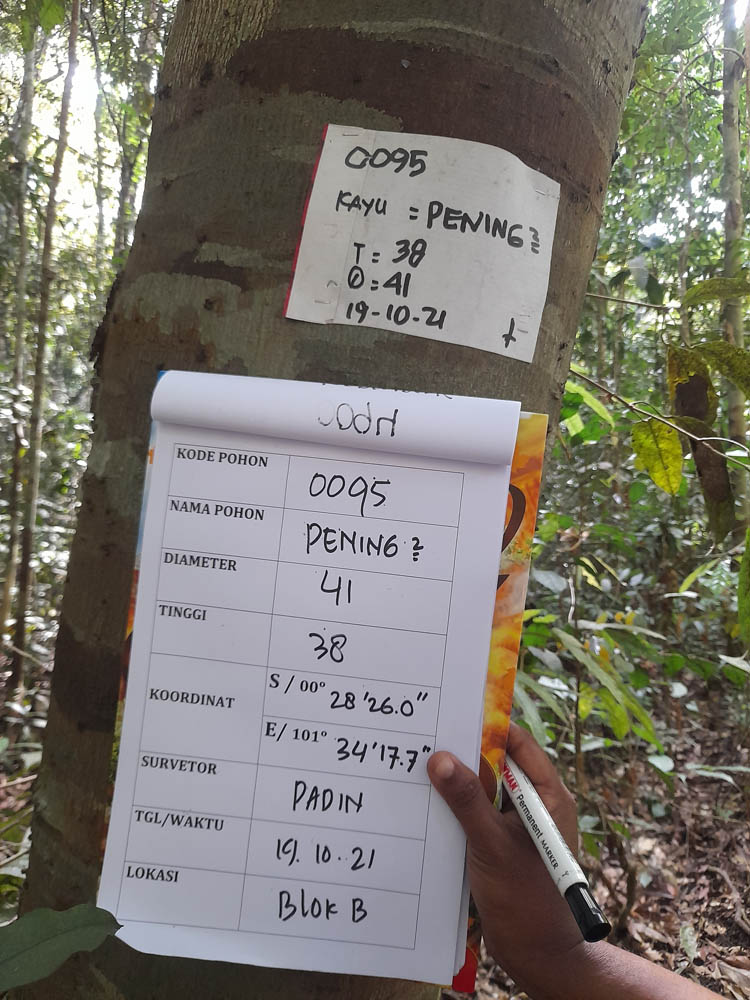 0095
KAYU = PENING 2
T = 38
Ø = 41
19-10-21
KODE POHON 0095
NAMA POHON PENING 2
DIAMETER 41
TINGGI 38
KOORDINAT S / 00° 28'26.0"
E/ 101° 34'17.7"
SURVETOR PADIN
TGL/WAKTU 19. 10. 21
LOKASI Blok B
Permanent MARKER